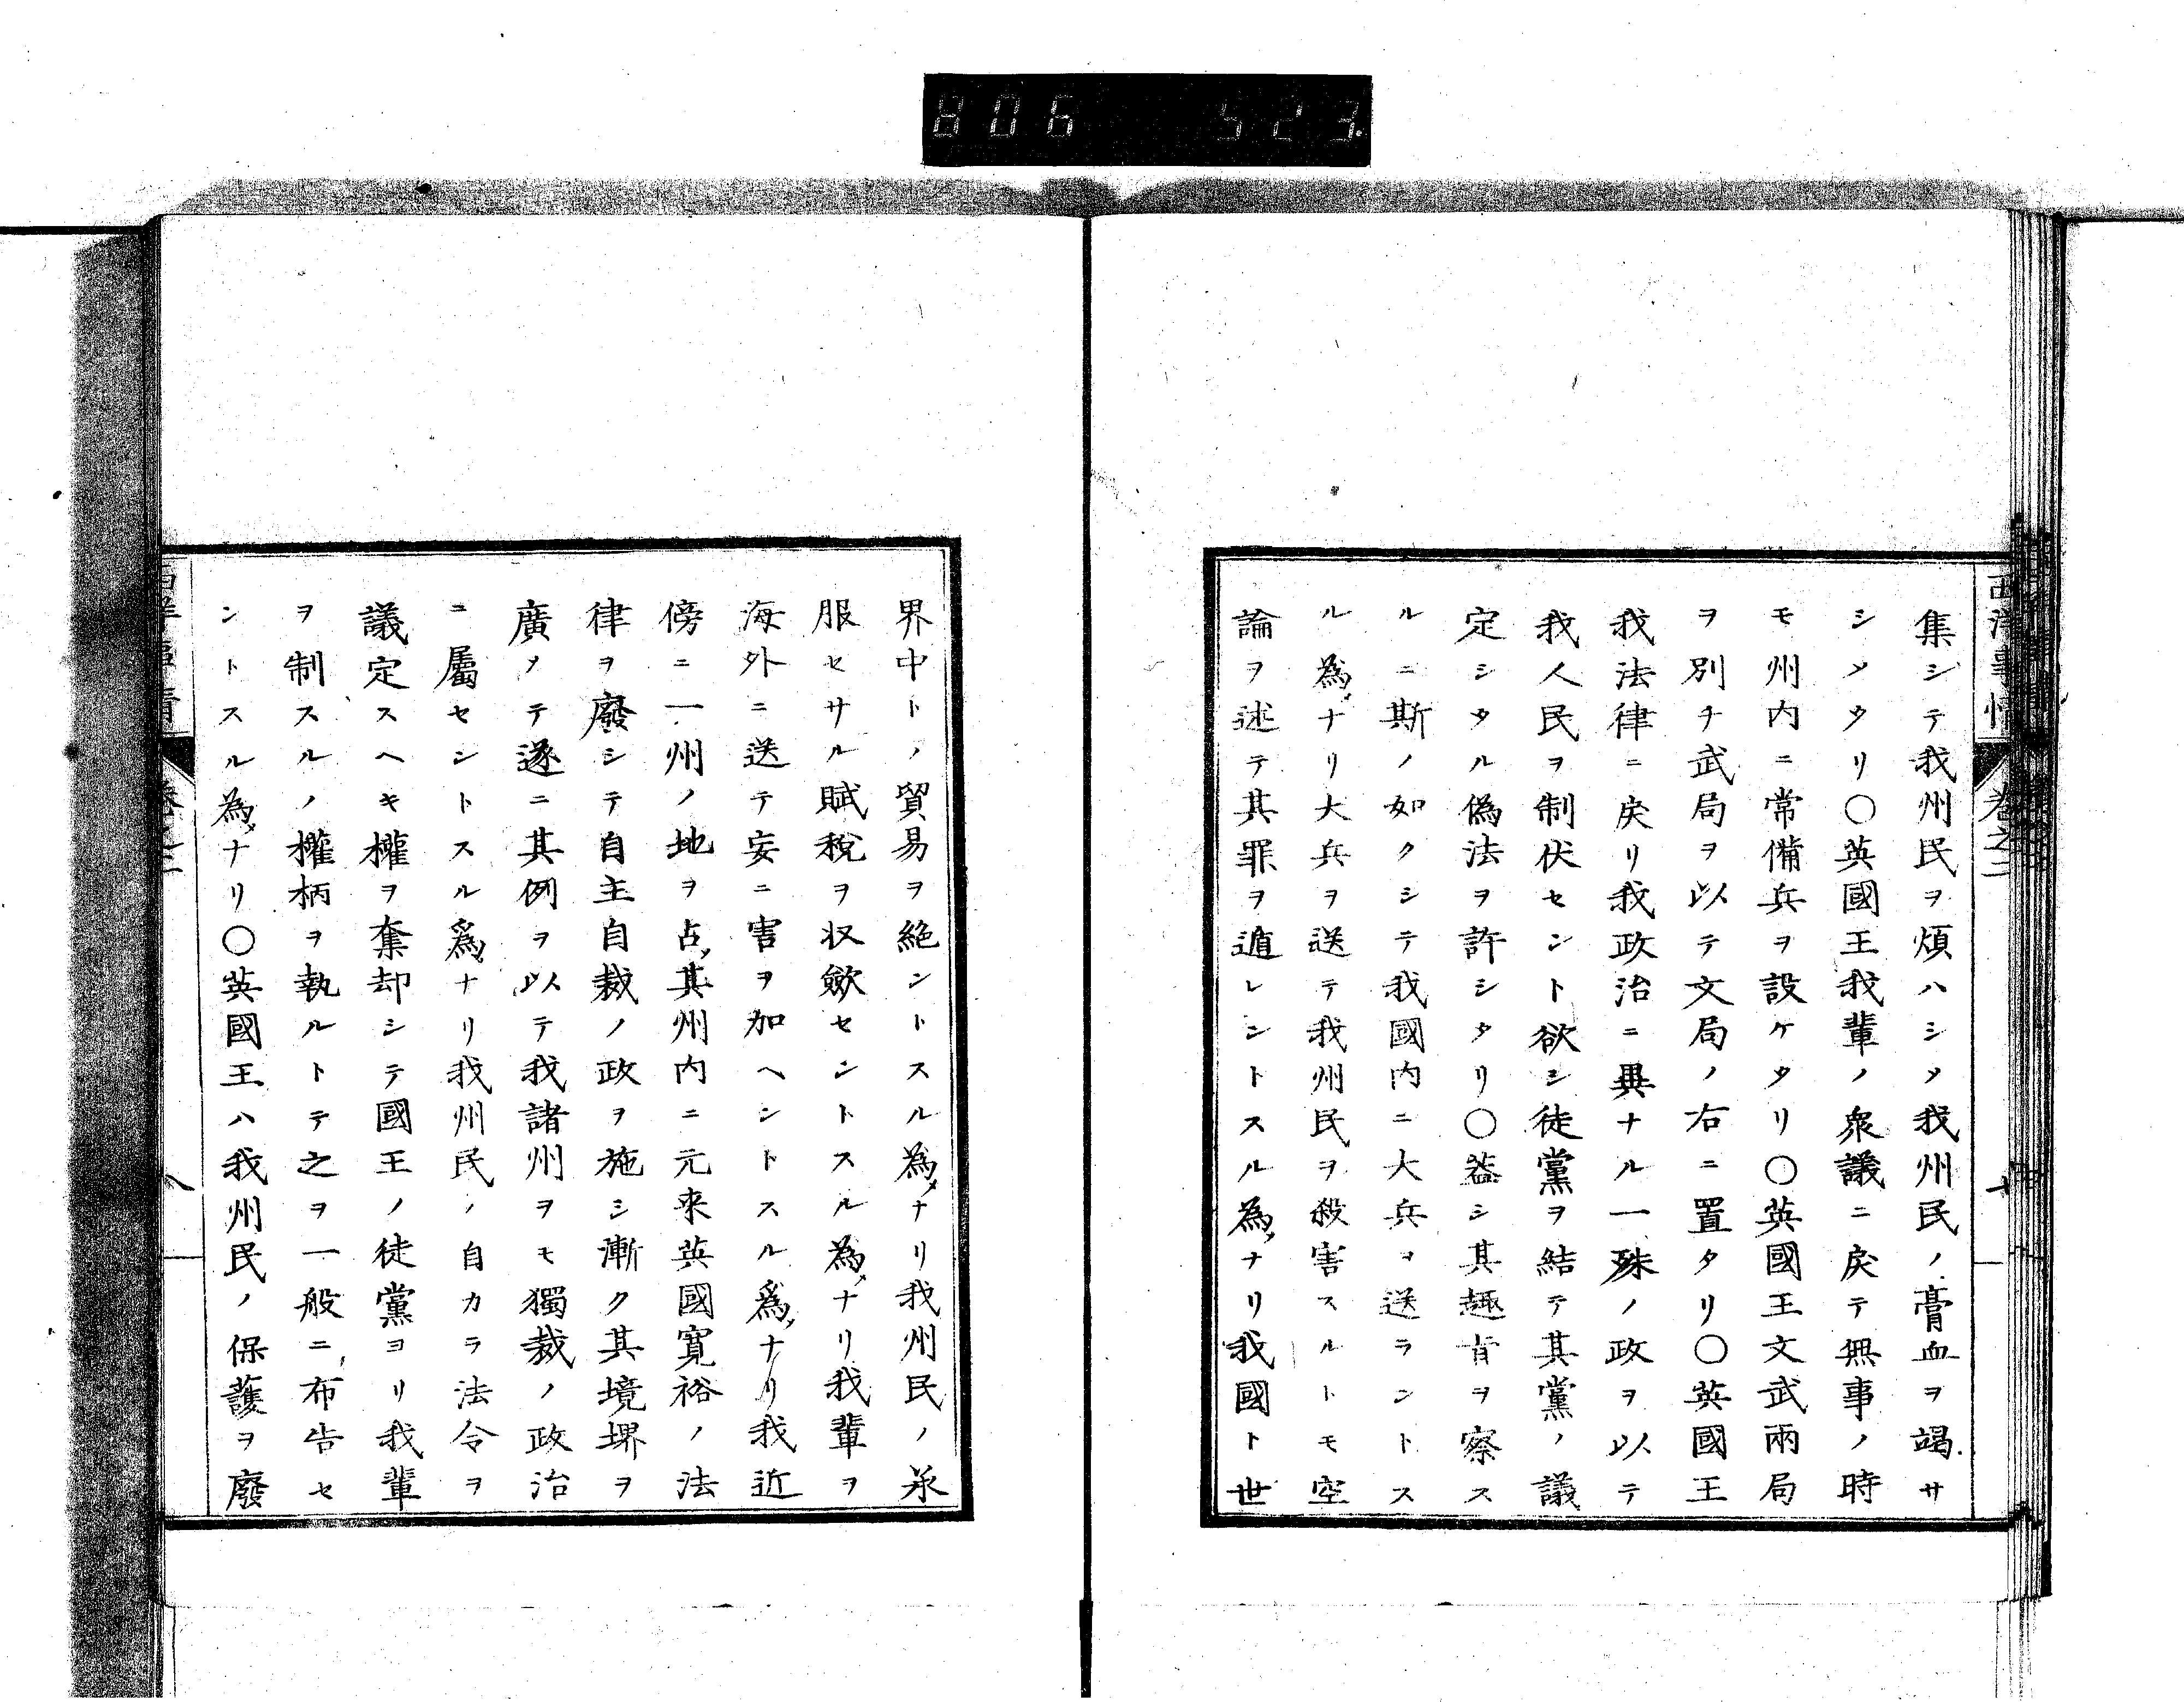 806 523.
西洋事情 卷之二
集シテ我州民ヲ煩ハシメ我州民ノ膏血ヲ竭サ
シメタリ〇英國王我輩ノ衆議ニ戻テ無事ノ時
モ州内ニ常備兵ヲ設ケタリ〇英國王文武兩局
ヲ別チ武局ヲ以テ文局ノ右ニ置タリ〇英國王
我法律ニ戻リ我政治ニ異ナル一殊ノ政ヲ以テ
我人民ヲ制伏セント欲シ徒黨ヲ結テ其黨ノ議
定シタル僞法ヲ許シタリ〇葢シ其趣旨ヲ察ス
ルニ斯ノ如クシテ我國内ニ大兵ヲ送ラントス
ル為メナリ大兵ヲ送テ我州民ヲ殺害スルトモ空
論ヲ述テ其罪ヲ遁レントスル為メナリ我國ト世
界中トノ貿易ヲ絶ントスル為メナリ我州民ノ承
服セサル賦税ヲ収斂セントスル為メナリ我輩ヲ
海外ニ送テ妄ニ害ヲ加ヘントスル爲メナリ我近
傍ニ一州ノ地ヲ占メ其州内ニ元来英國寛裕ノ法
律ヲ廢シテ自主自裁ノ政ヲ施シ漸ク其境堺ヲ
廣メテ遂ニ其例ヲ以テ我諸州ヲモ獨裁ノ政治
ニ屬セシトスル爲メナリ我州民ノ自カラ法令ヲ
議定スヘキ權ヲ奪却シテ國王ノ徒黨ヨリ我輩
ヲ制スルノ權柄ヲ執ルトテ之ヲ一般ニ布告セ
ントスル為メナリ〇英國王ハ我州民ノ保護ヲ廢
西洋事情 卷之二 八